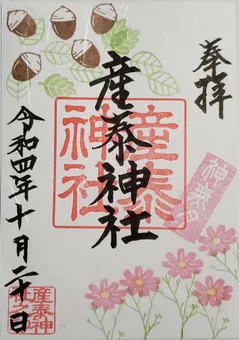 奉拝
産泰神社
産泰神社
神楽日
令和四年十月二十日
産泰神社